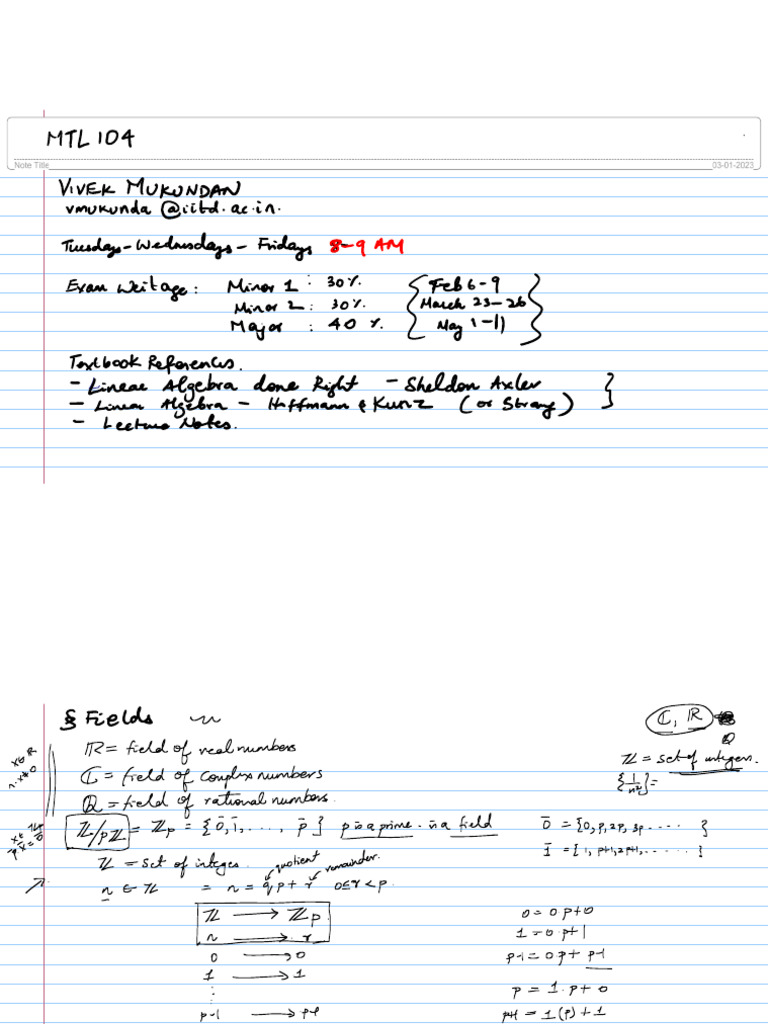 MTL 104
Note Title
03-01-2023
VIVEK MUKUNDAN
vmukunda @iitd.ac.in.
Tuesdays - Wednesdays - Fridays 8-9 AM
Exam Weitage : Minor 1 : 30 %. { Feb 6-9 }
Minor 2 : 30 %. { March 23-26 }
Major : 40 %. { May 1-11 }
Textbook References.
- Linear Algebra done Right - Sheldon Axler
- Linear Algebra - Hoffmann & Kunz (or Strang) }
- Lecture Notes.
§ Fields
ℂ, ℝ
ℚ
ℝ = field of real numbers
ℤ = set of integers.
ℂ = field of complex numbers
{1/n²} =
x∈ℝ
n·x≠0
ℚ = field of rational numbers.
ℤ/pℤ = ℤp = {0̄, 1̄, ..., p̄} p is a prime. is a field
0̄ = {0, p, 2p, 3p ..... }
x∈ ℤp
p·x̄ = 0̄
1̄ = {1, p+1, 2p+1, ...... }
ℤ = set of integers.
quotient remainder.
n ∈ ℤ = n = qp + r 0≤r<p.
ℤ → ℤp
0 = 0p+0
n → r
1 = 0·p+1
0 → 0
p-1 = 0p + p-1
1 → 1
p = 1·p + 0
⋮
p-1 → p-1
p+1 = 1(p) + 1